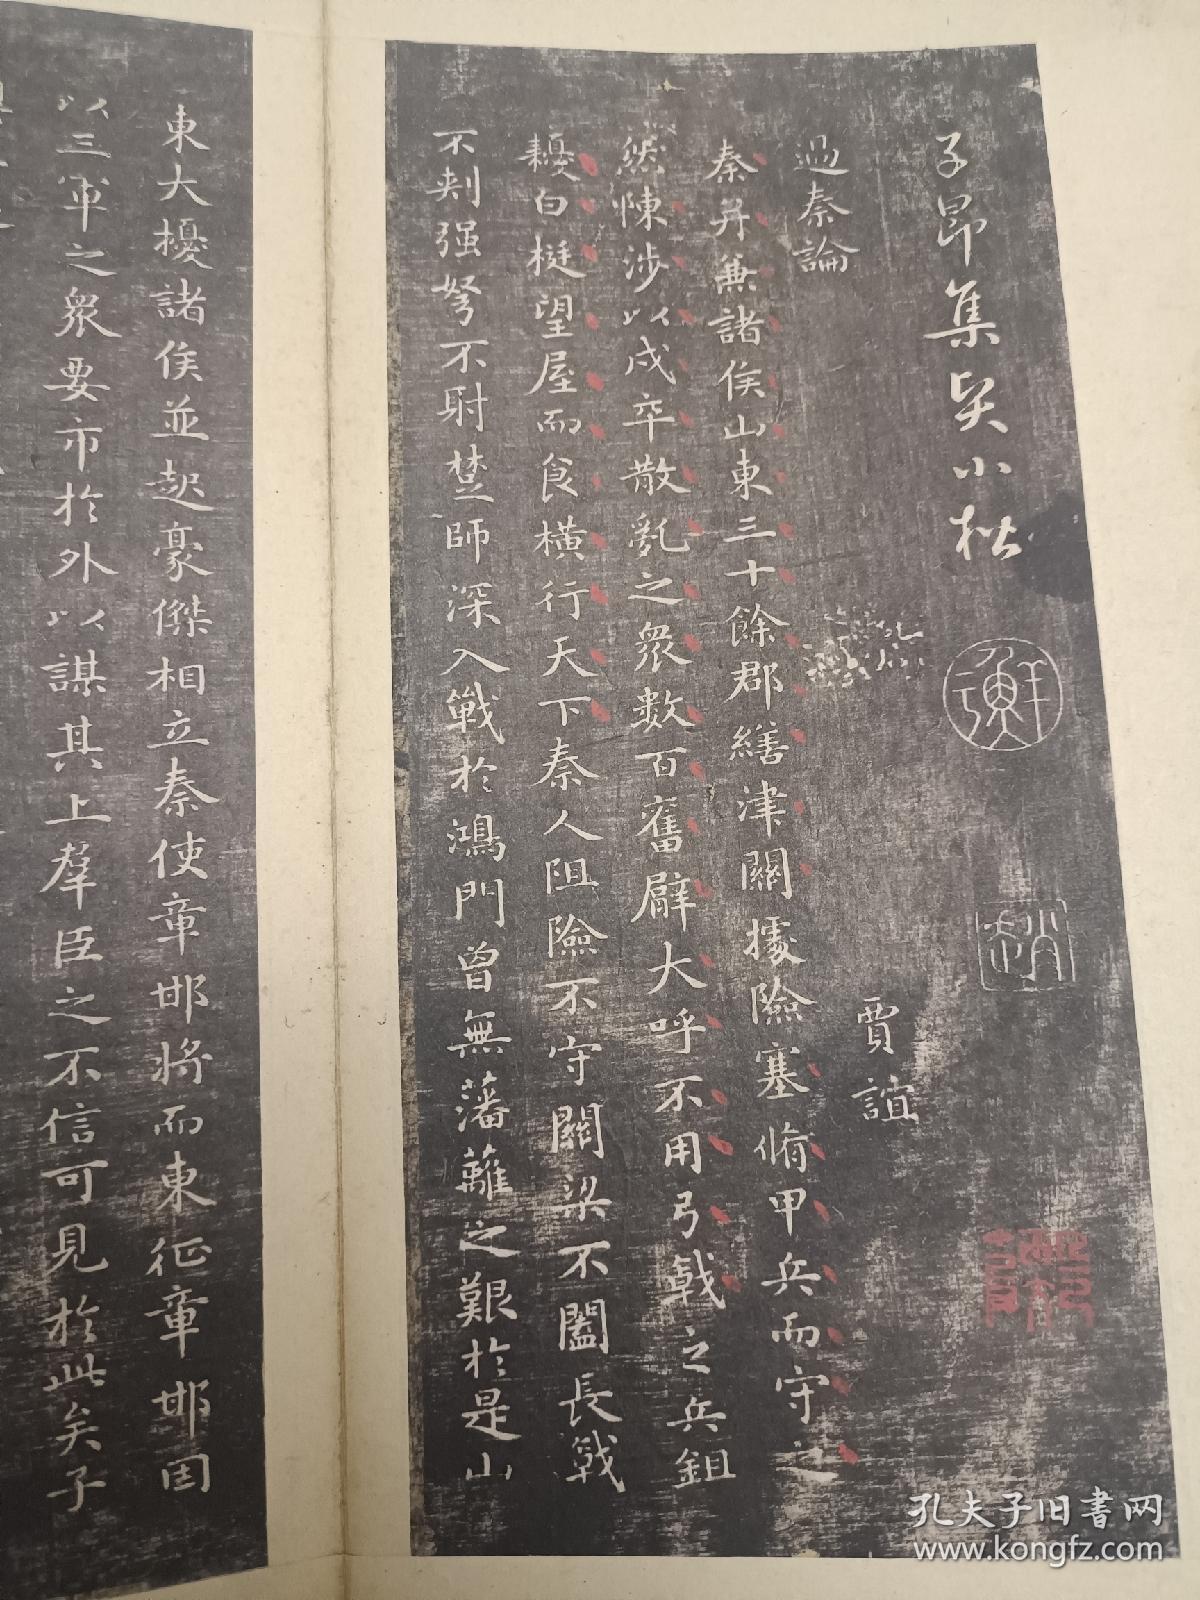 子昂集吴小楷
過秦論
賈誼
秦并兼諸侯山東三十餘郡繕津關據險塞脩甲兵而守之
然陳涉以戍卒散亂之衆數百奮臂大呼不用弓戟之兵鉏
耰白梃望屋而食橫行天下秦人阻險不守關梁不闔長戟
不刺强弩不射楚師深入戰於鴻門曾無藩籬之艱於是山
東大擾諸侯並起豪傑相立秦使章邯將而東征章邯因
以三軍之衆要市於外以謀其上羣臣之不信可見於此矣子
孔夫子旧书网
www.kongfz.com